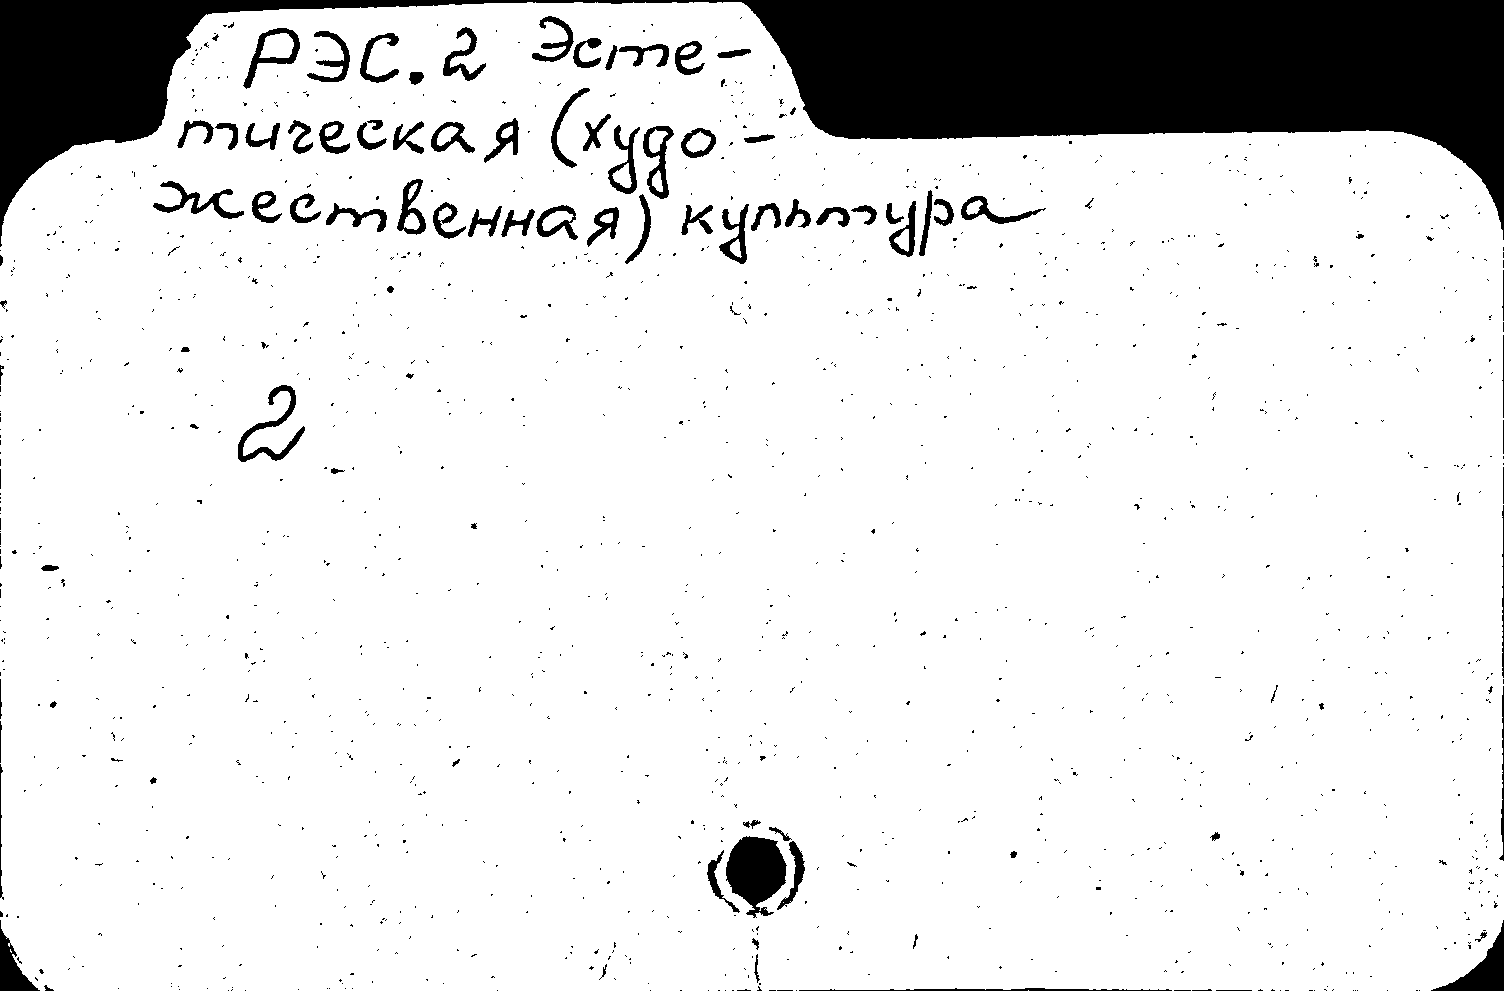 РЭС.2 Эсте-
тическая (худо-
жественная) культура
2